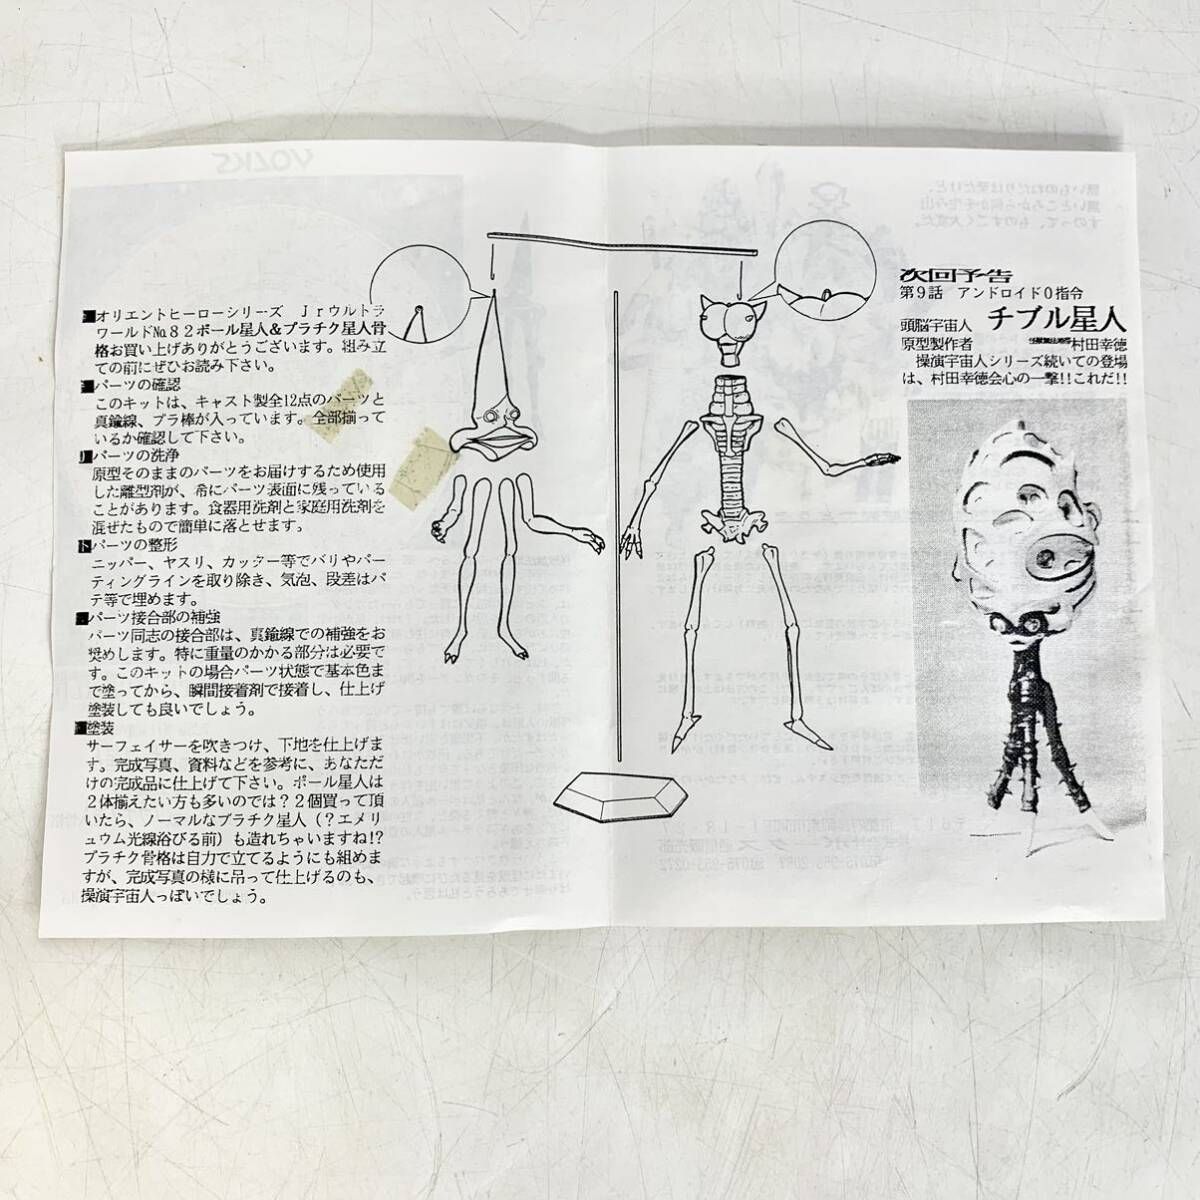 ■オリエントヒーローシリーズ Jrウルトラ
ワールド№82ポール星人&プラチク星人骨
格お買い上げありがとうございます。組み立
ての前にぜひお読み下さい。
パーツの確認
このキットは、キャスト製全12点のパーツと
真鍮線、プラ棒が入っています。全部揃って
いるか確認して下さい。
パーツの洗浄
原型そのままのパーツをお届けするため使用
した離型剤が、希にパーツ表面に残っている
ことがあります。食器用洗剤と家庭用洗剤を
混ぜたもので簡単に落とせます。
パーツの整形
ニッパー、ヤスリ、カッター等でバリやパー
ティングラインを取り除き、気泡、段差はパ
テ等で埋めます。
■パーツ接合部の補強
パーツ同志の接合部は、真鍮線での補強をお
奨めします。特に重量のかかる部分は必要で
す。このキットの場合パーツ状態で基本色ま
で塗ってから、瞬間接着剤で接着し、仕上げ
塗装しても良いでしょう。
塗装
サーフェイサーを吹きつけ、下地を仕上げま
す。完成写真、資料などを参考に、あなただ
けの完成品に仕上げて下さい。ポール星人は
2体揃えたい方も多いのでは?2個買って頂
いたら、ノーマルなプラチク星人(?エメリ
ュウム光線浴びる前)も造れちゃいますね!?
プラチク骨格は自力で立てるようにも組めま
すが、完成写真の様に吊って仕上げるのも、
操演宇宙人っぽいでしょう。
次回予告
第9話 アンドロイド0指令
頭脳宇宙人 チブル星人
原型製作者 村田幸徳
操演宇宙人シリーズ続いての登場
は、村田幸徳会心の一撃!!これだ!!
VOLKS